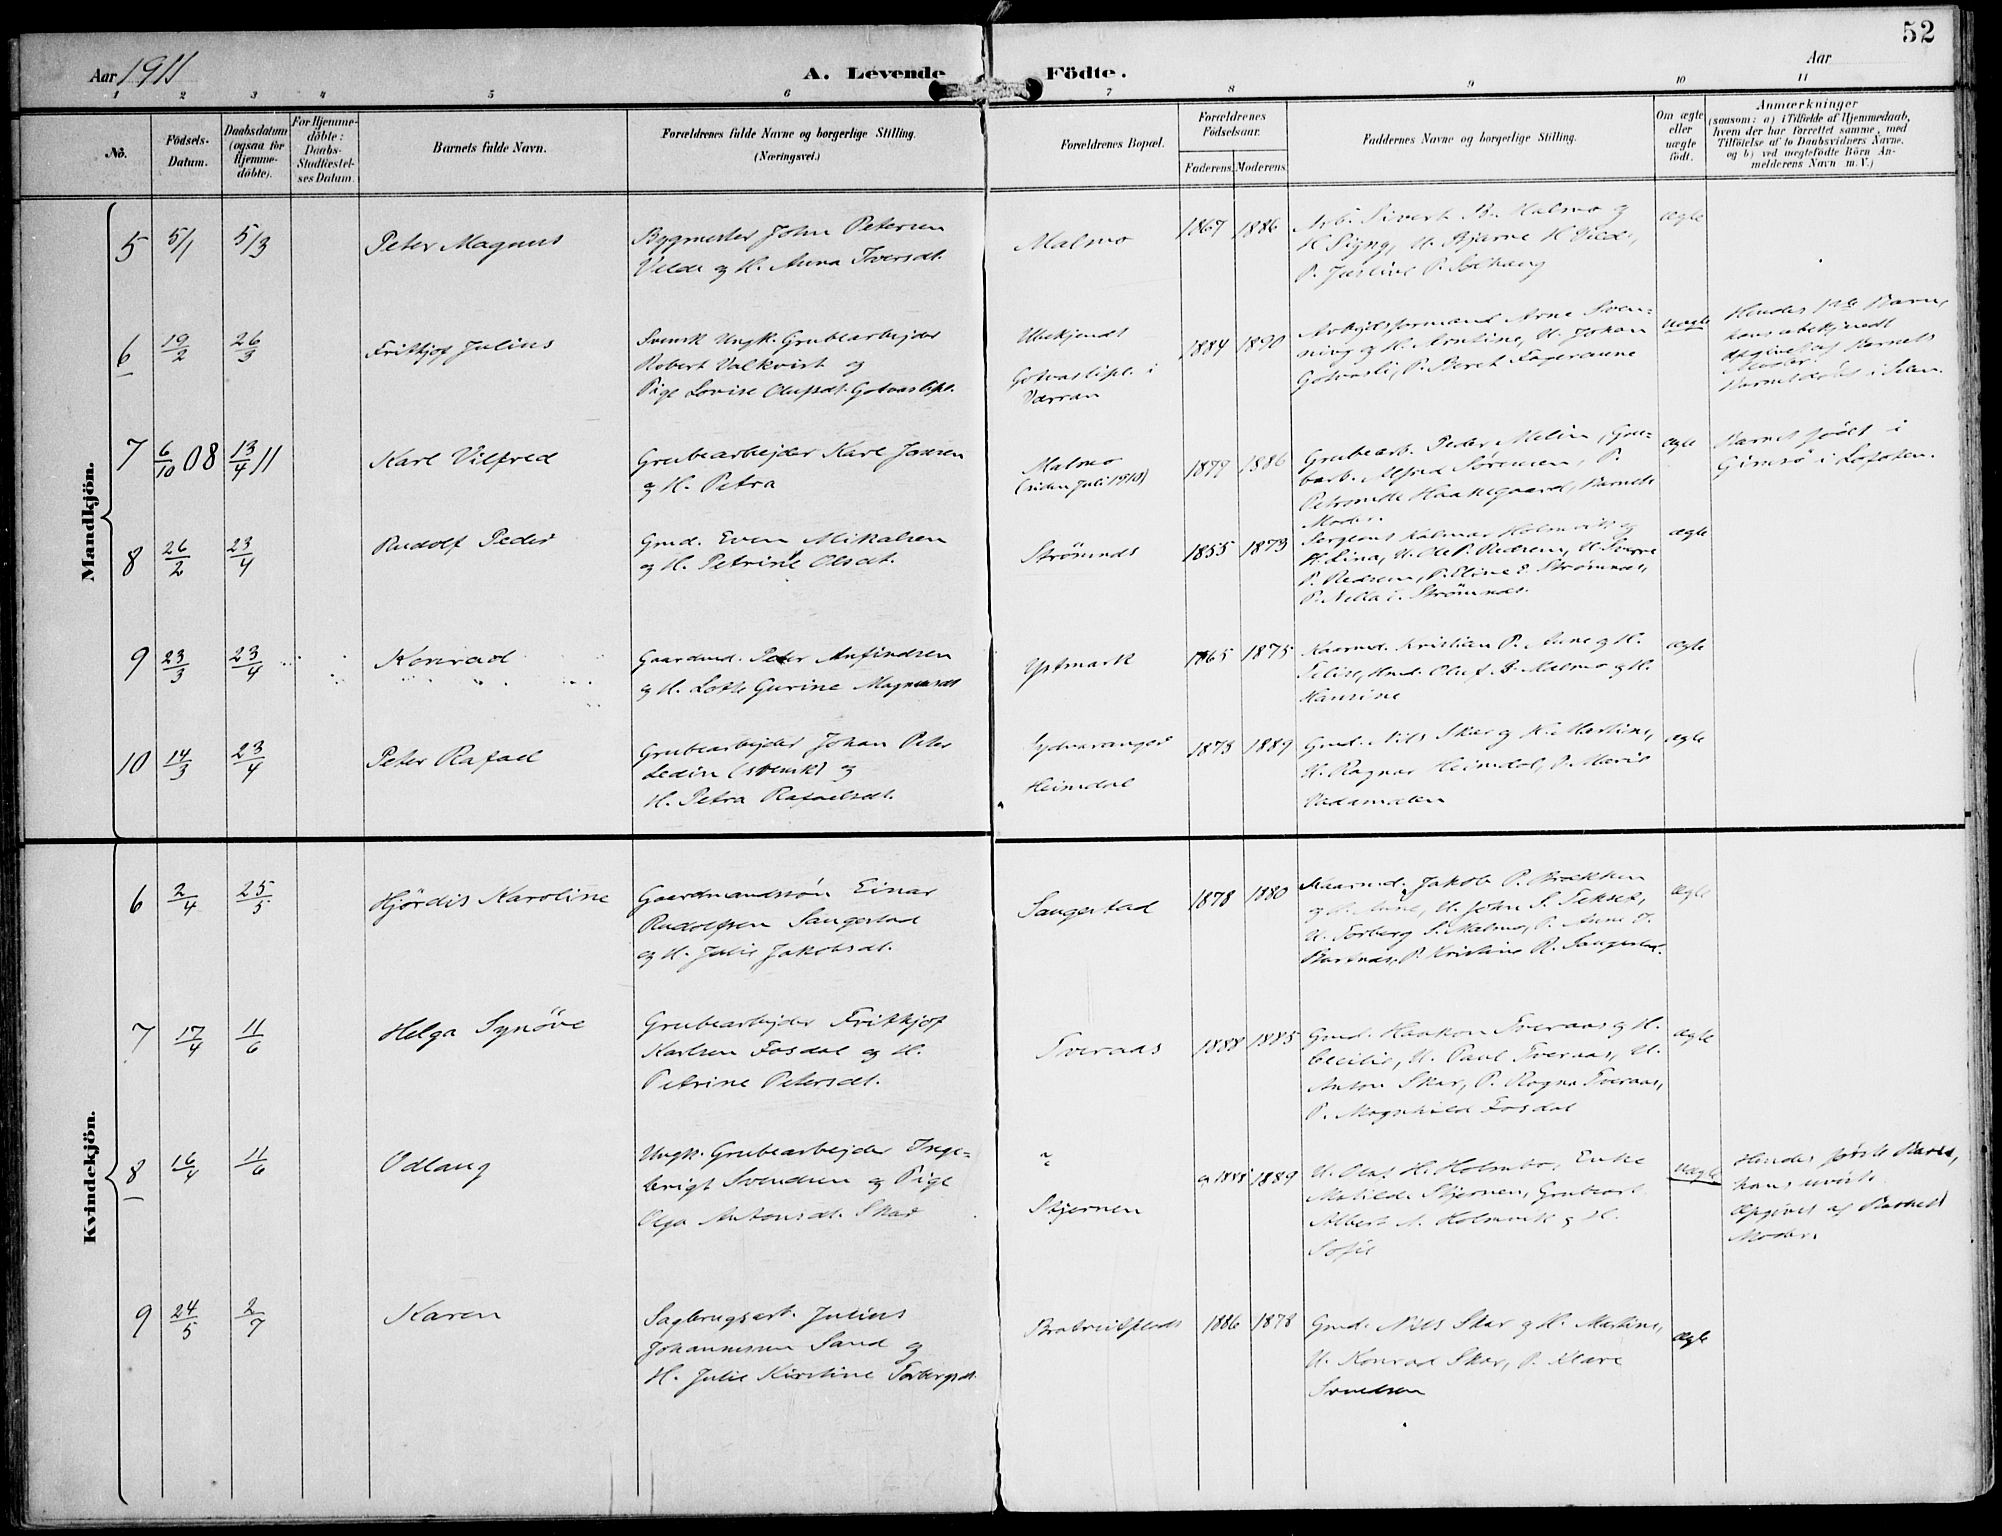 52
Aar 1911
A. Levende Födte.
Aar
1 2 3 4 5 6 7 8 9 10 11
No.
Födsels-
Datum.
Daabsdatum
(ogsaa for
Hjemme-
döbte).
For Hjemme-
döbte:
Daabs-
Stadfæstel-
ses Datum.
Barnets fulde Navn.
Forældrenes fulde Navne og borgerlige Stilling.
(Næringsvei.)
Forældrenes Bopæl.
Forældrenes
Födselsaar.
Faderens. Moderens.
Faddernes Navne og borgerlige Stilling.
Om ægte
eller
uægte
födt.
Anmærkninger
(saasom: a) i Tilfælde af Hjemmedaab,
hvem der har forrettet samme, med
Tilföielse af to Daabsvidners Navne,
og b) ved uægtefödte Börn An-
melderens Navn m. V.)
Mandkjön.
5 5/1 5/3 Peter Magnus
Bygmester John Petersen
Velde og H. Anna Iversdt.
Malmo
1867 1886
Arb. Sivert B. Malmo og
H. Signy, U. Bjarne H. Vilds,
P. Justine P. Solhaug
ægte
6 19/2 26/3 Fritjof Julius
Svensk Ungk. Grubearbejder
Robert Valkvist og
Pige Lovise Olufsdt. Gotvaslipl.
Ubekjendt
Gotvaslipl. i
Værran
1884 1890
Arbejdsformand Arne Sven-
ning og H. Arntine, U. Johan
Gotvasli, P. Beret Fageraune
uægte
Hendes 1ste Barn,
hans ubekjendt
Opgivet af Barnets
Moder.
7 6/10 08 13/4 11 Karl Vilfred
Grubearbejder Karl Jensen
og H. Petra
Malmo
(siden Juli 1910)
1879 1886
Grubearb. Peder Melin, Gru-
bearb. Alfred Sørensen, P.
Petronelle Haakegaard, Barnets
Moder.
ægte
Barnet født i
Gimsø i Lofoten.
8 26/2 23/4 Rudolf Peder
Gmd. Even Mikalsen
og H. Petrine Olsdt.
Strömnes
1855 1873
Sergeant Kalmar Holmvik og
H. Lina, U. Ole P. Pedersen, U. Sverre
P. Pedersen, P. Eline E. Strömnes,
P. Nella E. Strömnes.
ægte
9 23/3 23/4 Konrad
Gaardmd. Peter Anfindsen
og H. Lotte Gurine Magnusdt
Ystmark
1865 1875
Kaarmd. Kristian P. Aune og H.
Felise, Hmd. Oluf B. Malmo og H.
Hansine
ægte
10 14/3 23/4 Peter Rafael
Grubearbejder Johan Peter
Ledin (svensk) og
H. Petra Rafaelsdt.
Sydvaranger
Heimdal
1873 1889
Gmd. Nils Skar og H. Martine,
U. Ragnar Heimdal, P. Marit
ægte
Kvindekjön.
6 2/4 25/5 Hjördis Karoline
Gaardmandssön Einar
Rudolfsen Saugestad
og H. Julie Jakobsdt.
Saugestad
1878 1880
Kaarmd. Jakob P. Brækken
og H. Anne, U. John S. Sekset,
U. Torberg S. Malmo, P. Anne J.
Bartnes, P. Kristine R. Saugestad.
ægte
7 17/4 11/6 Helga Synöve
Grubearbejder Frithjof
Karlsen Fosdal og H.
Petrine Petersdt.
Tveraas
1888 1885
Gmd. Haakon Tveraas og H.
Cecilie, U. Paul Tveraas, U.
Anton Skar, P. Ragna Tveraas,
P. Magnhild Fosdal
ægte
8 16/4 11/6 Odlaug
Ungk. Grubearbejder Inge-
brigt Svendsen og Pige
Olga Antonsdt. Skar
Stjernen
1888 1889
U. Olaf H. Holmbo, Enke
Matilde Stjernen, Grubearb.
Albert A. Holmvik og H.
Sofie
uægte
Hendes første Barn,
hans uvist.
Opgivet af Barnets
Moder.
9 24/5 2/7 Karen
Sagbrugsarb. Julius
Johannessen Sand og
H. Julie Kirstine Torbergsdt.
Bratreitplads
1886 1878
Gmd. Nils Skar og H. Martine,
U. Konrad Skar, P. Klara
Svendsen
ægte